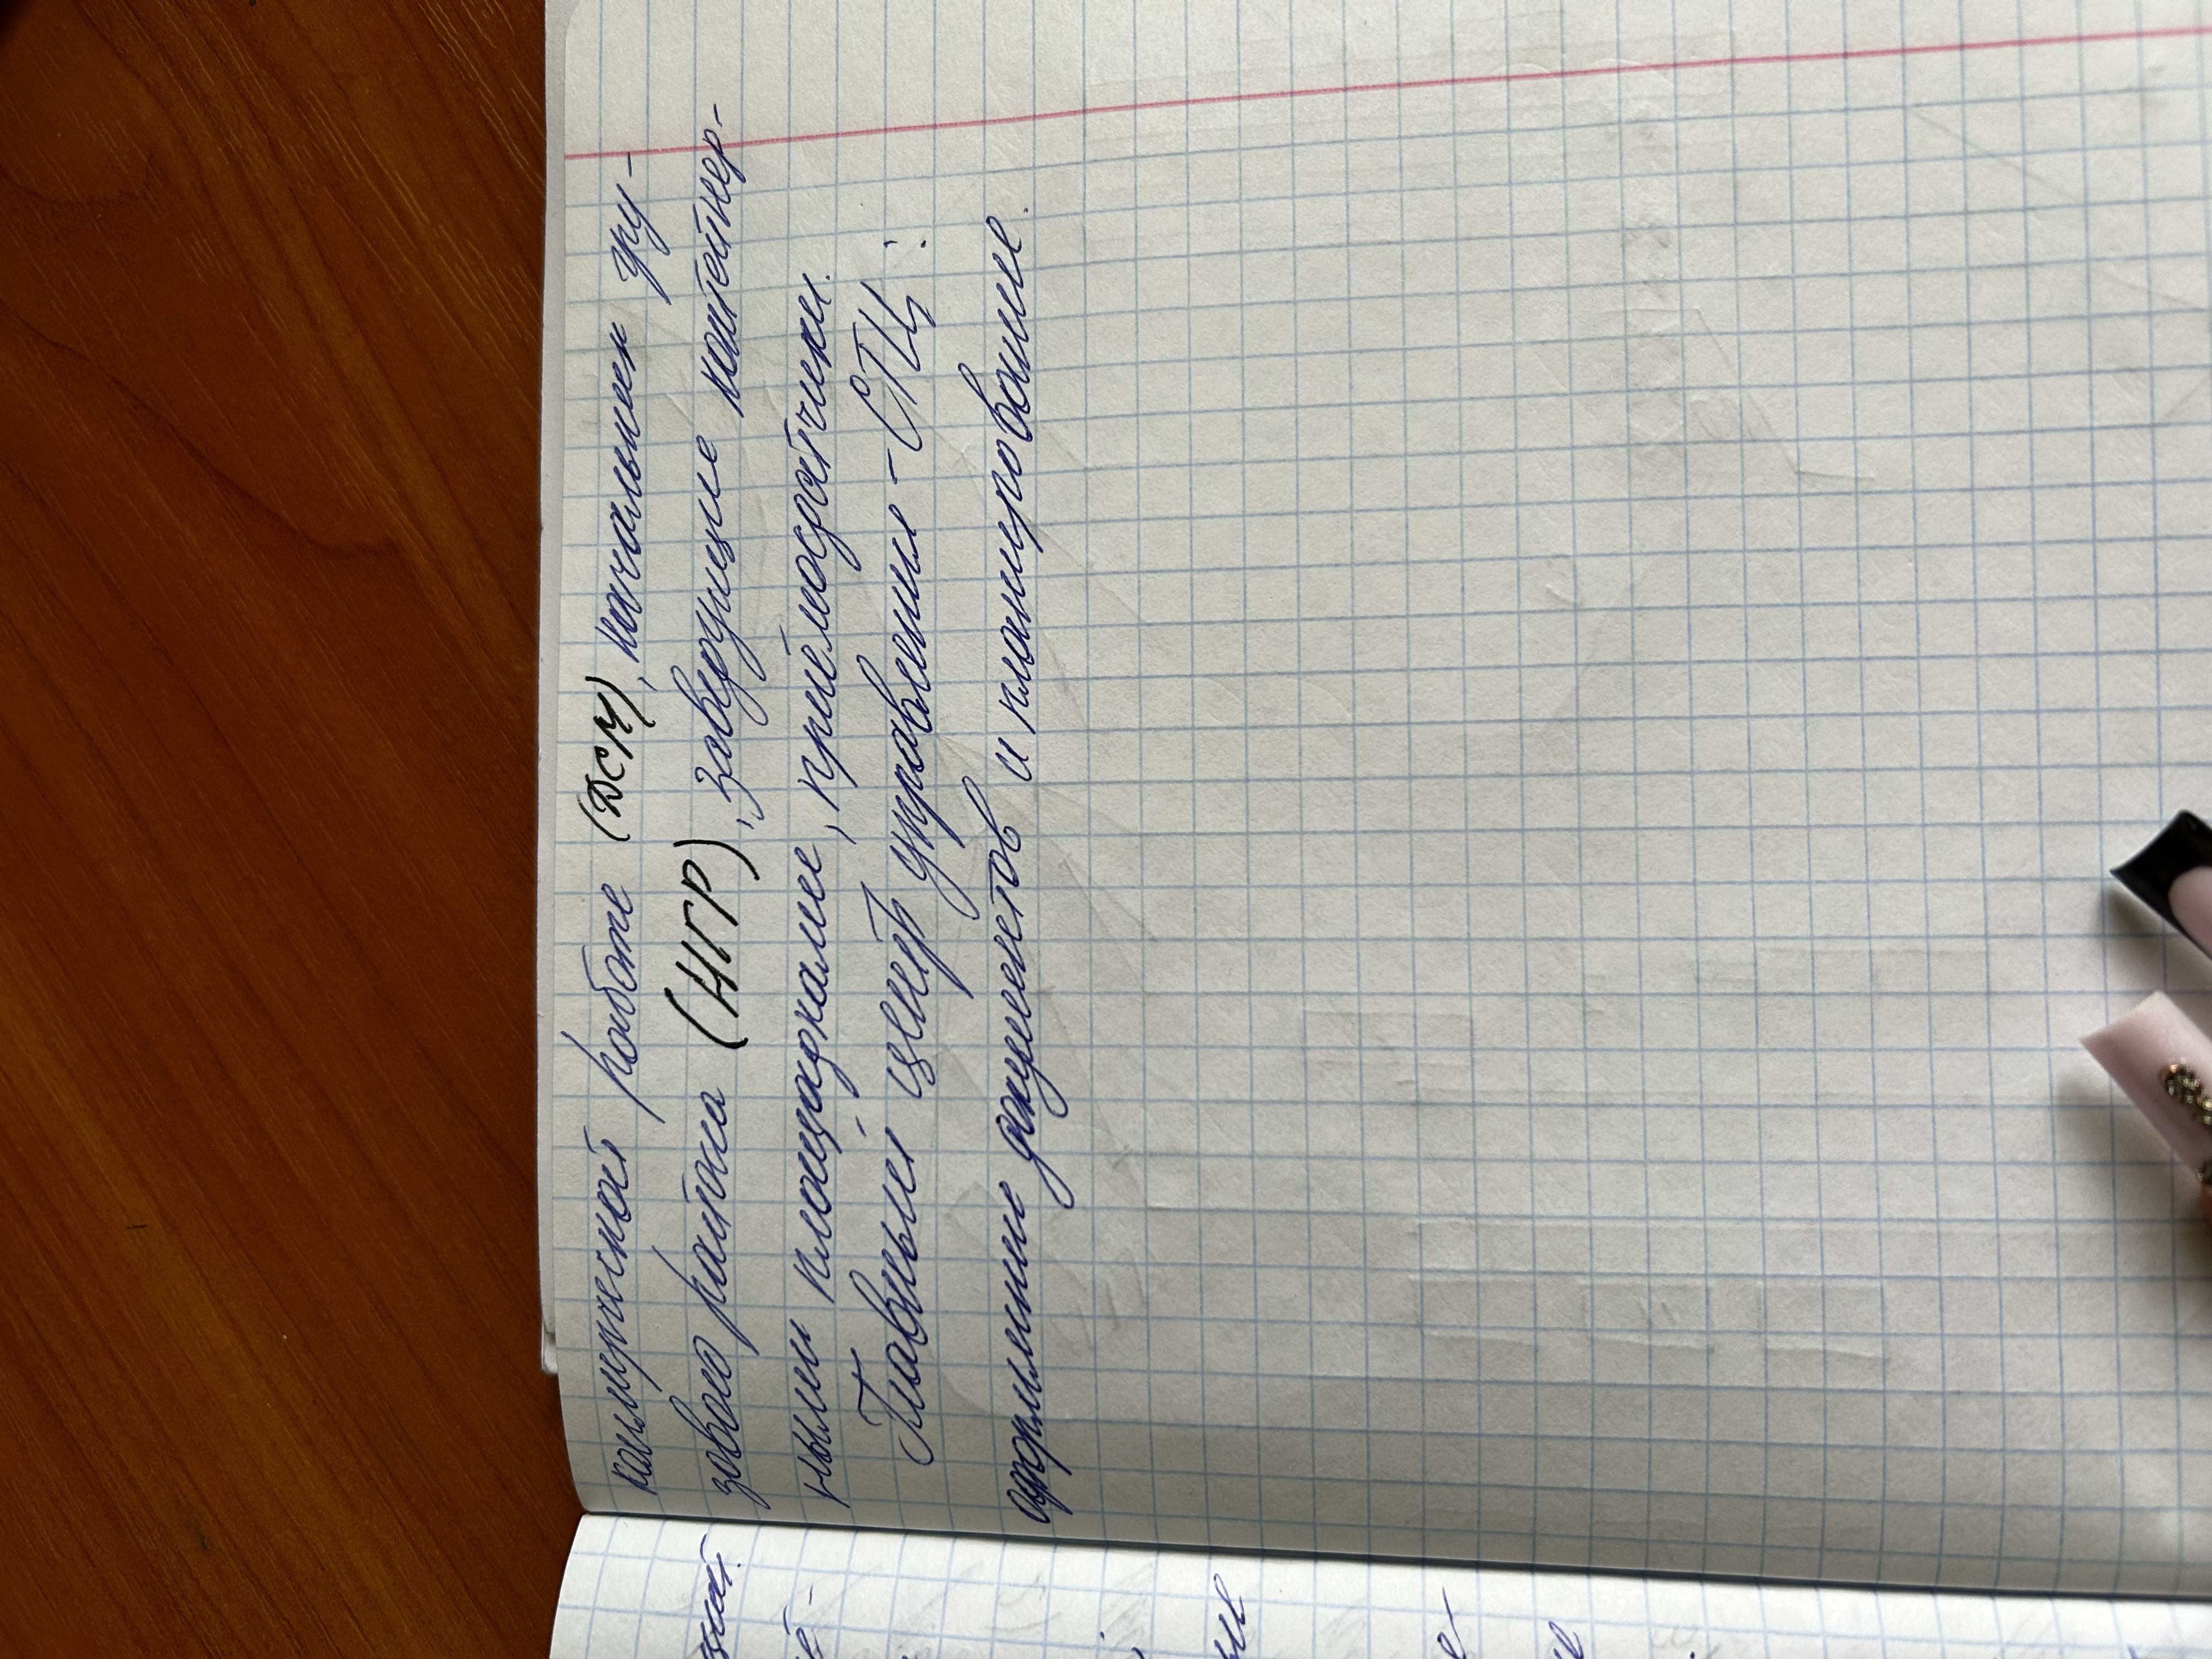 коммерческой работе (ДСМ), начальники гру-
зового района (НГР), заведующие контейнер-
ными площадками, приёмосдатчики.
Главный центр управления - СТЦ:
оформление документов и планирование.